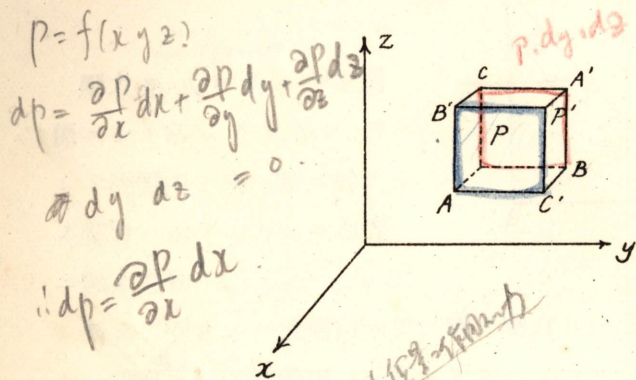 p = f(x y z)
dp = ∂p/∂x dx + ∂p/∂y dy + ∂p/∂z dz
dy dz = 0
∴ dp = ∂p/∂x dx
p.dy.dz
z
C
A'
B'
P'
P
B
A
C'
y
x